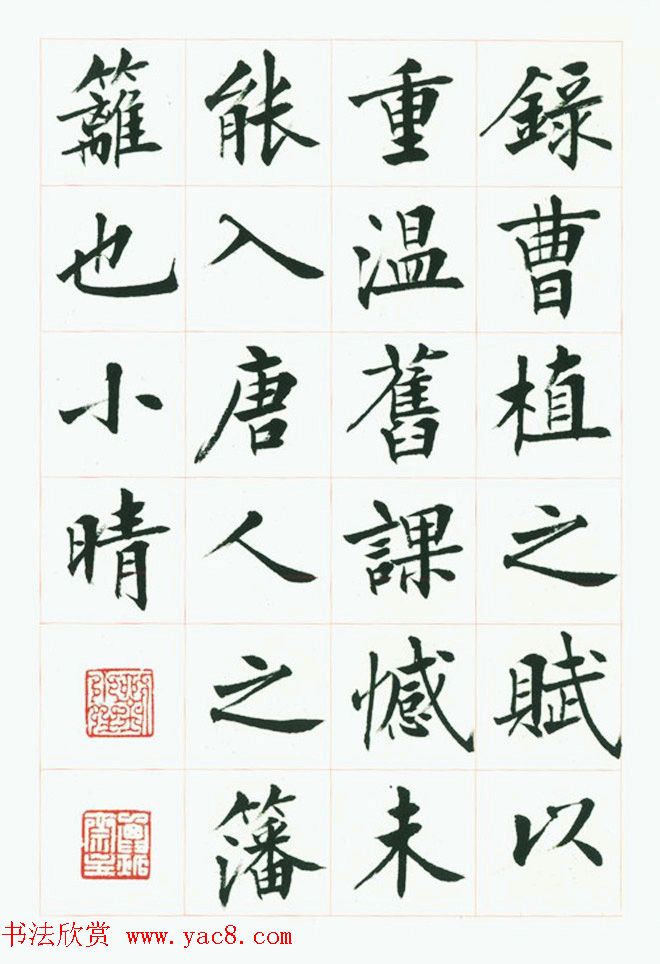 錄曹植之賦以
重温舊課憾未
能入唐人之籓
籬也小晴
书法欣赏 www.yac8.com